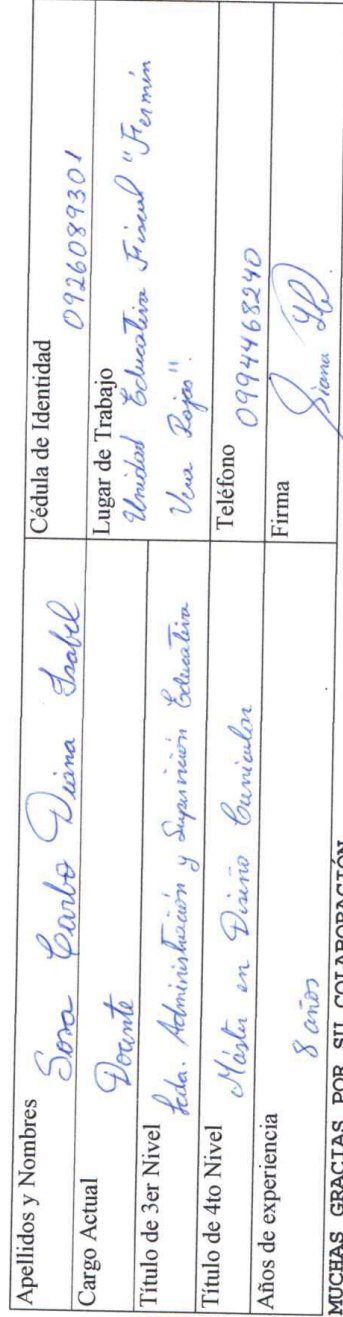 Apellidos y Nombres Sosa Carbo Diana Isabel
Cédula de Identidad 0926089301
Cargo Actual Docente
Lugar de Trabajo
Unidad Educativa Fiscal "Fermín
Vera Rojas".
Título de 3er Nivel
Lcda. Administración y Supervisión Educativa
Título de 4to Nivel Máster en Diseño Curricular
Teléfono 0994468240
Años de experiencia 8 años
Firma Diana
MUCHAS GRACIAS POR SU COLABORACIÓN